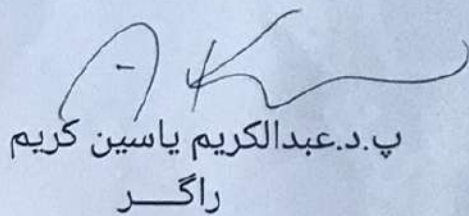 پ.د.عبدالكريم ياسين كريم
راگـــر